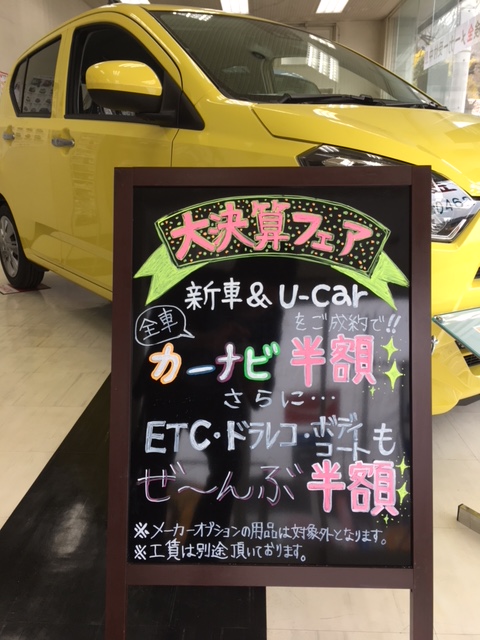 大決算フェア
新車&U-car
をご成約で!!
全車
カーナビ半額
さらに…
ETC・ドラレコ・ボディコートも
ぜ〜んぶ半額
※メーカーオプションの用品は対象外となります。
※工賃は別途頂いております。